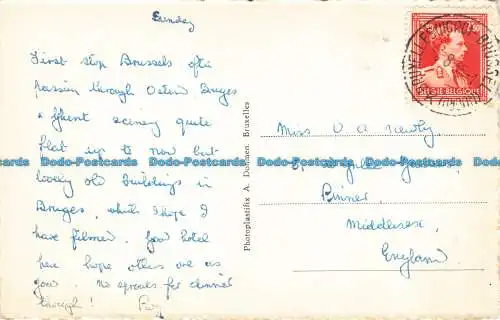 Sunday
First stop Brussels after
passing through Ostend Bruges
& Ghent scenery quite
flat up to now but
lovely old buildings in
Bruges, which I hope I
have filmed. Good hotel
here hope others are as
good. No sprouts for dinner
though!
BELGIE-BELGIQUE
Miss O A Newby
Gardens
Pinner
Middlesex
England
Photoplastifix A. Dohmen, Bruxelles
Dodo-Postcards Dodo-Postcards Dodo-Postcards Dodo-Postcards
Dodo-Postcards Dodo-Postcards Dodo-Postcards Dodo-Postcards